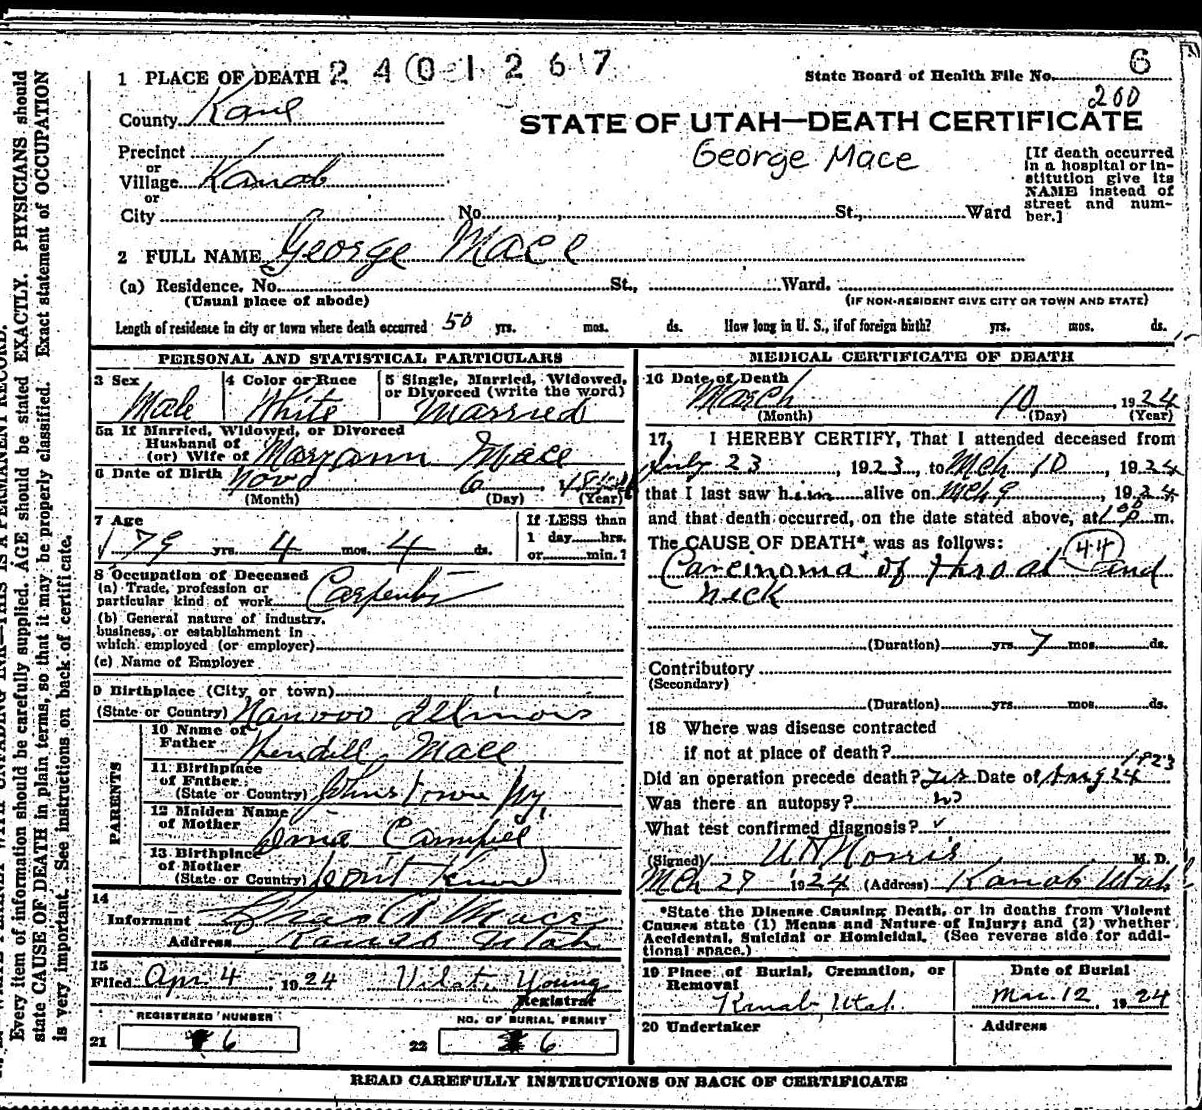 1 PLACE OF DEATH 2401267
State Board of Health File No. 6
200
County Kane
STATE OF UTAH—DEATH CERTIFICATE
George Mace
Precinct
or
Village Kanab
or
City No. St., Ward
[If death occurred
in a hospital or in-
stitution give its
NAME instead of
street and num-
ber.]
2 FULL NAME George Mace
(a) Residence. No. St., Ward.
(Usual place of abode) (IF NON-RESIDENT GIVE CITY OR TOWN AND STATE)
Length of residence in city or town where death occurred 50 yrs. mos. ds. How long in U. S., if of foreign birth? yrs. mos. ds.
PERSONAL AND STATISTICAL PARTICULARS
3 Sex Male
4 Color or Race White
5 Single, Married, Widowed,
or Divorced (write the word)
Married
5a If Married, Widowed, or Divorced
Husband of
(or) Wife of Maryann Mace
6 Date of Birth Nov 6
(Month) (Day) (Year)
7 Age
79 yrs. 4 mos. 4 ds.
If LESS than
1 day hrs.
or min.?
8 Occupation of Deceased
(a) Trade, profession or
particular kind of work Carpenter
(b) General nature of industry,
business, or establishment in
which employed (or employer)
(c) Name of Employer
9 Birthplace (City or town)
(State or Country) Nauvoo Illinois
PARENTS
10 Name of
Father Mace
11 Birthplace
of Father
(State or Country) Johnstown Ny,
12 Maiden Name
of Mother
13 Birthplace
of Mother
(State or Country) Don't Know
14
Informant Chas A Mace
Address Kanab Utah
15
Filed Apr 4, 1924 Young
Registrar
REGISTERED NUMBER
21 6
NO. OF BURIAL PERMIT
22 6
MEDICAL CERTIFICATE OF DEATH
16 Date of Death
March 10 1924
(Month) (Day) (Year)
17, I HEREBY CERTIFY, That I attended deceased from
July 23, 1923, to Mch 10, 1924
that I last saw him alive on Mch 9, 1924
and that death occurred, on the date stated above, at 1 00 p m.
The CAUSE OF DEATH* was as follows:
44
Carcinoma of throat and
neck
(Duration) yrs. 7 mos. ds.
Contributory
(Secondary)
(Duration) yrs. mos. ds.
18 Where was disease contracted
if not at place of death?
1923
Did an operation precede death? Yes Date of Aug 24
Was there an autopsy? no
What test confirmed diagnosis?
(Signed) Norris M. D.
Mch 29 1924 (Address) Kanab Utah
*State the Disease Causing Death, or in deaths from Violent
Causes state (1) Means and Nature of Injury; and (2) whether
Accidental, Suicidal or Homicidal. (See reverse side for addi-
tional space.)
19 Place of Burial, Cremation, or
Removal
Kanab, Utah.
Date of Burial
Mar. 12 1924
20 Undertaker
Address
READ CAREFULLY INSTRUCTIONS ON BACK OF CERTIFICATE
Every item of information should be carefully supplied. AGE should be stated EXACTLY. PHYSICIANS should
state CAUSE OF DEATH in plain terms, so that it may be properly classified. Exact statement of OCCUPATION
is very important. See instructions on back of certificate.